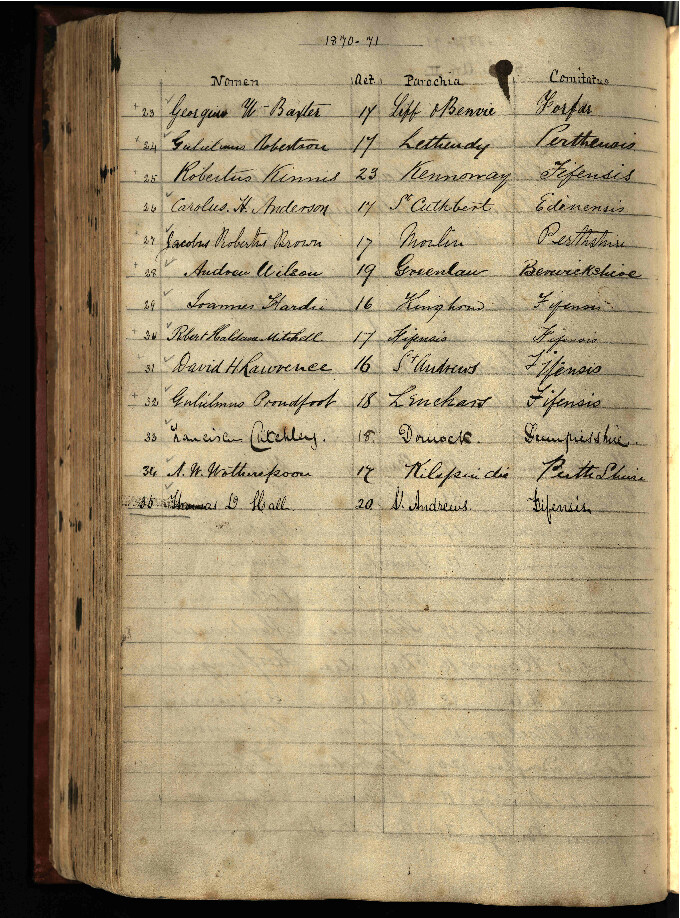 1870-71
Nomen Aet. Parochia Comitatus
+ 23 Georgius W Baxter 17 Liff & Benvie Forfar
+ 24 Gulielmus Robertson 17 Lethendy Perthensis
+ 25 Robertus Kinnis 23 Kennoway Fifensis
26 Carolus. H. Anderson 17 St Cuthbert Edenensis
+ 27 Jacobus Robertus Brown 17 Moulin Perthshire
+ 28 Andrew Wilson 19 Greenlaw Berwickshire
29 Joannes Hardie 16 Kinghorn Fifensis
+ 30 Robert Haldane Mitchell 17 Fifensis Fifensis
31 David H Lawrence 16 St Andrews Fifensis
+ 32 Gulielmus Proudfoot 18 Leuchars Fifensis
33 Franciscus Critchley. 18. Dornock. Dumfriesshire.
34 A. W. Wotherspoon 17 Kilspindie Perthshire
35 Thomas D Hall 20 St. Andrews. Fifensis